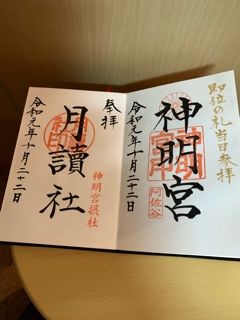 即位の礼当日参拝
神明宮
阿佐谷
令和元年十月二十二日
奉拝
月讀社
神明宮摂社
令和元年十月二十二日